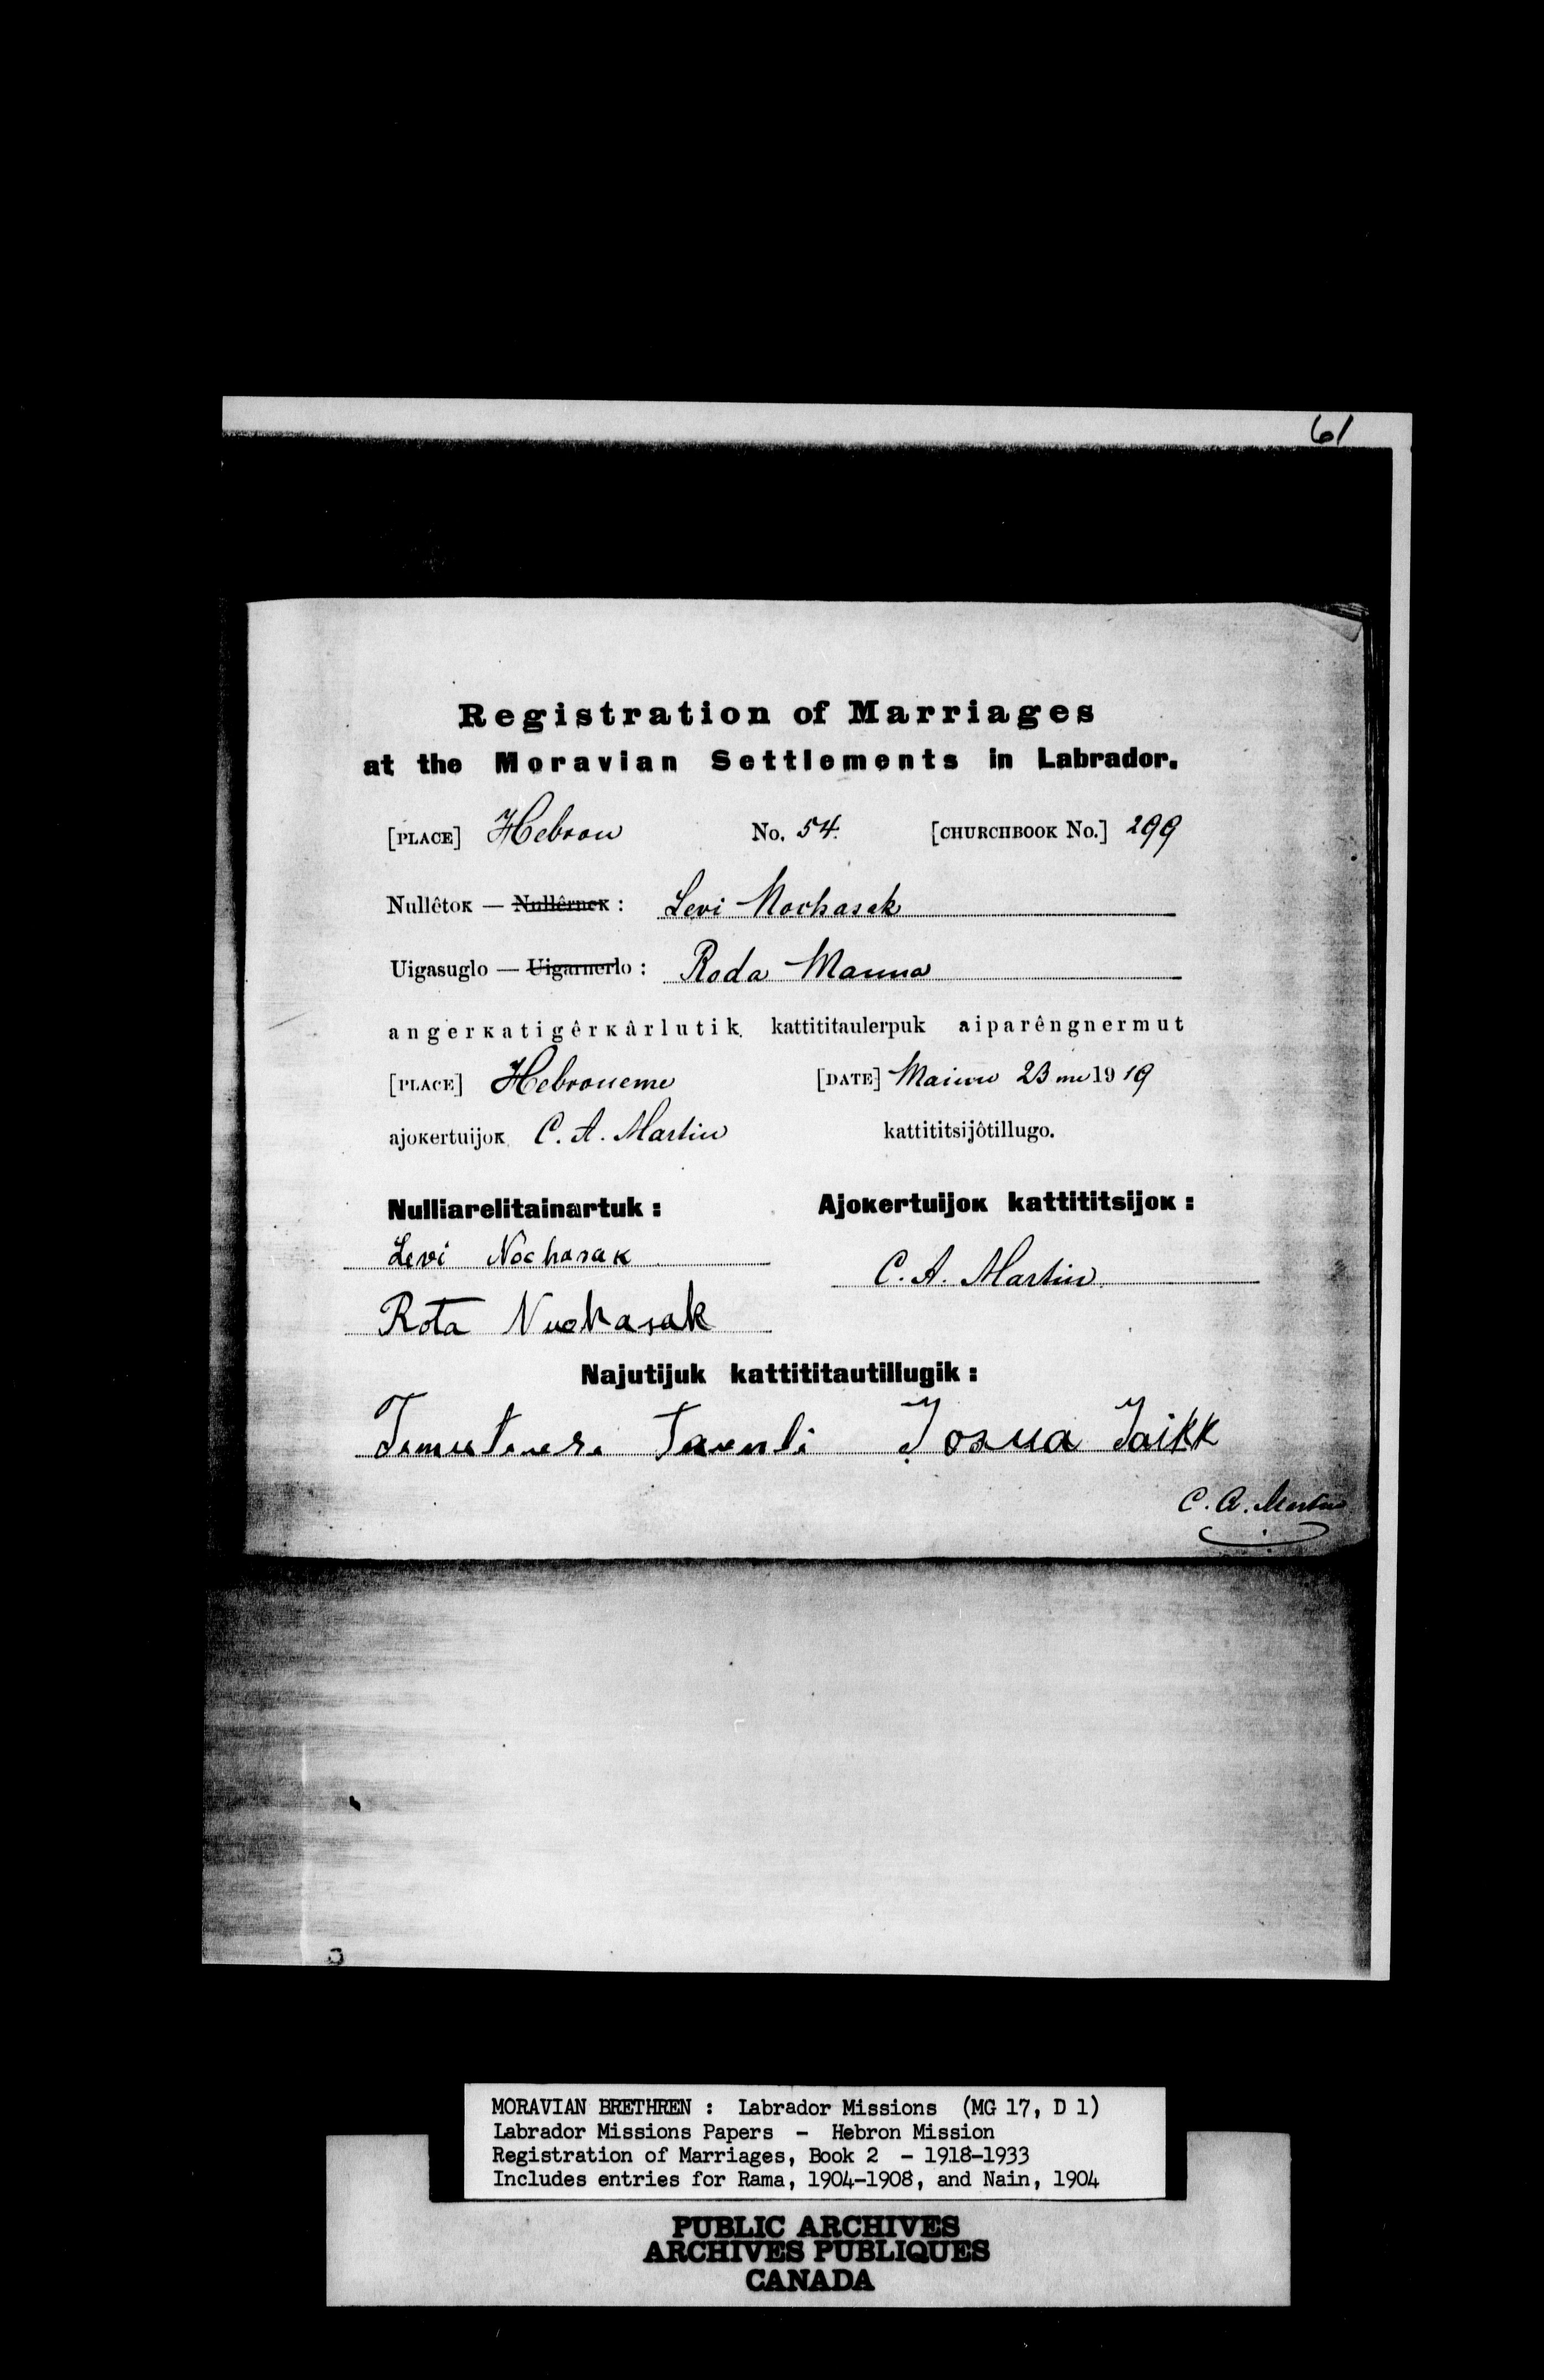 61
Registration of Marriages
at the Moravian Settlements in Labrador.
[PLACE] Hebron No. 54. [CHURCHBOOK No.] 299
Nullêtoĸ — Nullêrneĸ : Levi Nochasak
Uigasuglo — Uigarnerlo : Roda Manna
angerĸatigêrĸârlutik kattititaulerpuk aiparêngnermut
[PLACE] Hebroneme [DATE] Maime 23 me 1919
ajoĸertuijoĸ C. A. Martin kattititsijôtillugo.
Nulliarelitainartuk : Ajoĸertuijoĸ kattititsijoĸ :
Levi Nochasak
C. A. Martin
Rota Nochasak
Najutijuk kattititautillugik :
Josua Jaikk
C. A. Martin
MORAVIAN BRETHREN : Labrador Missions (MG 17, D 1)
Labrador Missions Papers - Hebron Mission
Registration of Marriages, Book 2 - 1918-1933
Includes entries for Rama, 1904-1908, and Nain, 1904
PUBLIC ARCHIVES
ARCHIVES PUBLIQUES
CANADA